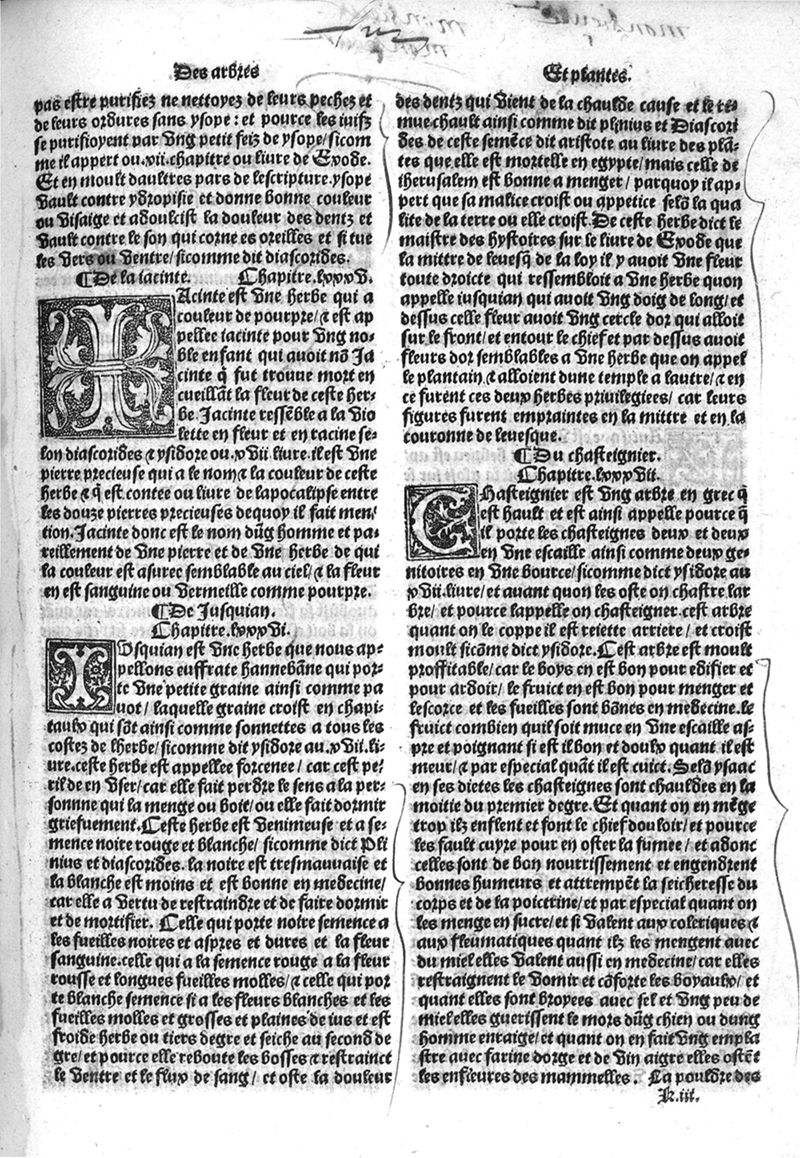 Des arbres
pas estre purifiez ne nettoyez de leurs pechez et
de leurs ordures sans ysope : et pource les iuifz
se purifioyent par vng petit feiz de ysope/ sicom
me il appert ou .xii. chapitre ou liure de Exode.
Et en moult daultres pars de lescripture. ysope
vault contre ydropisie et donne bonne couleur
ou visaige et adoulcist la douleur des dentz et
vault contre le son qui corne es oreilles et si tue
les vers ou ventre/ sicomme dit diascorides.
¶ De la iacinte. Chapitre. lxxxv.
IAcinte est vne herbe qui a
couleur de pourpre/ ⁊ est ap
pellee iacinte pour vng no-
ble enfant qui auoit nõ Ja
cinte q̃ fut trouue mort en
cueillãt la fleur de ceste her-
be. Jacinte ressẽble a la vio
lette en fleur et en racine se-
lon diascorides ⁊ ysidore ou. xvii liure. il est vne
pierre precieuse qui a le nom ⁊ la couleur de ceste
herbe ⁊ q̃ est contee ou liure de lapocalipse entre
les douze pierres precieuses dequoy il fait men/
tion. Jacinte donc est le nom dũg homme et pa-
reillement de vne pierre et de vne herbe de qui
la couleur est asuree semblable au ciel/ ⁊ la fleur
en est sanguine ou vermeille comme pourpre.
¶ De Jusquian.
Chapitre. lxxxvi.
IUsquian est vne herbe que nous ap-
pellons euffrate hannebãne qui por-
te vne petite graine ainsi comme pa
uot/ laquelle graine croist en chapi-
taulx qui sõt ainsi comme sonnettes a tous les
costez de lherbe/ sicomme dit ysidore au. xvii. li-
ure. ceste herbe est appellee forcenee/ car cest pe/
ril de en vser/ car elle fait perdre le sens a la per-
sonnne qui la menge ou boit/ ou elle fait dormir
griefuement. Ceste herbe est venimeuse et a se-
mence noire rouge et blanche/ sicomme dict Pli
nius et diascorides. la noire est tresmauuaise et
la blanche est moins et est bonne en medecine/
car elle a vertu de restraindre et de faire dormir
et de mortifier. Celle qui porte noire semence a
les fueilles noires et aspres et dures et la fleur
sanguine. celle qui a la semence rouge a la fleur
rousse et longues fueilles molles/ ⁊ celle qui por
te blanche semence si a les fleurs blanches et les
fueilles molles et grosses et plaines de ius et est
froide herbe ou tiers degre et seiche au second de
gre/ et pource elle reboute les bosses ⁊ restrainct
le ventre et le flux de sang/ et oste la douleur
Et plantes.
des dentz qui vient de la chaulde cause et le te-
mue chault ainsi comme dit plinius et Diascori
des de ceste semẽce dit aristote au liure des plã-
tes que elle est mortelle en egypte/ mais celle de
iherusalem est bonne a menger/ parquoy il ap-
pert que sa malice croist ou appetice selõ la qua
lite de la terre ou elle croist. De ceste herbe dict le
maistre des hystoires sur le liure de Exode que
la mittre de leuesq̃ de la loy il y auoit vne fleur
toute droicte qui ressembloit a vne herbe quon
appelle iusquian qui auoit vng doig de long/ et
dessus celle fleur auoit vng cercle dor qui alloit
sur le front/ et entour le chief et par dessus auoit
fleurs dor semblables a vne herbe que on appel
le plantain ⁊ alloient dune temple a lautre/ ⁊ en
ce furent ces deux herbes priuilegiees/ car leurs
figures furent empraintes en la mittre et en la
couronne de leuesque.
¶ Du chasteignier.
Chapitre. lxxxvii.
CHasteignier est vng arbre en grec q̃
est hault et est ainsi appelle pource q̃
il porte les chasteignes deux et deux
en vne escaille ainsi comme deux ge-
nitoires en vne bource/ sicomme dict ysidore au
xvii. liure/ et auant quon les oste on chastre lar
bre/ et pource lappelle on chasteigner. cest arbre
quant on le coppe il est reiette arriere/ et croist
moult sicõme dict ysidore. Cest arbre est moult
proffitable/ car le boys en est bon pour edifier et
pour ardoir/ le fruict en est bon pour menger et
lescorce et les fueilles sont bõnes en medecine. le
fruict combien quil soit muce en vne escaille as-
pre et poignant si est il bon et doulx quant il est
meur/ ⁊ par especial quãt il est cuict. Selõ ysaac
en ses dietes les chasteignes sont chauldes en la
moitie du premier degre. Et quant on en mẽge
trop ilz enflent et font le chief douloir/ et pource
les fault cuyre pour en oster la fumee/ et adonc
celles sont de bon nourrissement et engendrent
bonnes humeurs et attrempẽt la seicheresse du
corps et de la poictrine/ et par especial quant on
les menge en sucre/ et si valent aux coleriques ⁊
aux fleumatiques quant ilz les mengent auec
du miel elles valent aussi en medecine/ car elles
restraignent le vomir et cõforte les boyaulx/ et
quant elles sont broyees auec sel et vng peu de
miel elles guerissent le mors dũg chien ou dung
homme enraige/ et quant on en fait vng empla
stre auec farine dorge et de vin aigre elles ostẽt
les enfleures des mammelles. La pouldre des
K.iii.